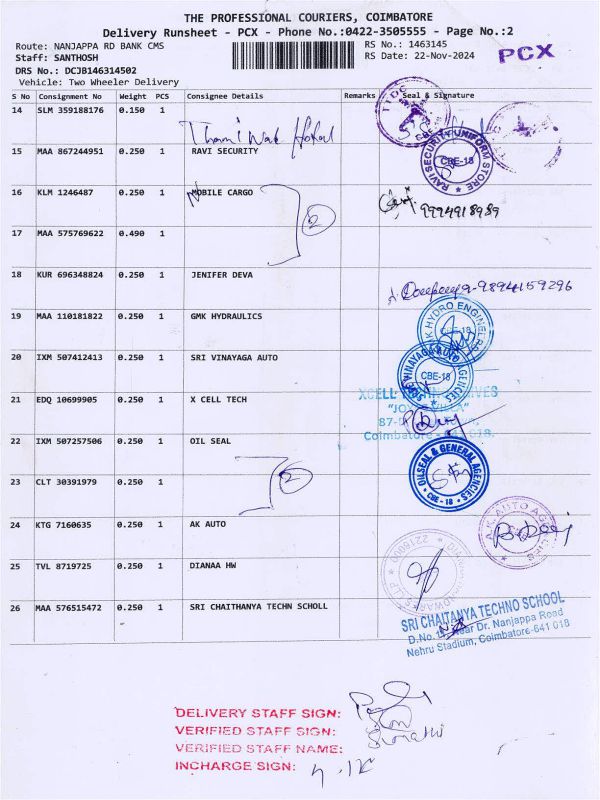 THE PROFESSIONAL COURIERS, COIMBATORE
Delivery Runsheet - PCX - Phone No.:0422-3505555 - Page No.:2
Route: NANJAPPA RD BANK CMS
RS No.: 1463145
Staff: SANTHOSH
RS Date: 22-Nov-2024
PCX
DRS No.: DCJB146314502
Vehicle: Two Wheeler Delivery
S No Consignment No Weight PCS Consignee Details Remarks Seal & Signature
14 SLM 359188176 0.150 1
15 MAA 867244951 0.250 1 RAVI SECURITY
RAVI SECURITY UNIFORM STORE
CBE-18
16 KLM 1246487 0.250 1 MOBILE CARGO
2
9994918989
17 MAA 575769622 0.490 1
18 KUR 696348824 0.250 1 JENIFER DEVA
9894159296
19 MAA 110181822 0.250 1 GMK HYDRAULICS
20 IXM 507412413 0.250 1 SRI VINAYAGA AUTO
CBE-18
21 EDQ 10699905 0.250 1 X CELL TECH
22 IXM 507257506 0.250 1 OIL SEAL
OILSEAL & GENERAL AGENCIES
CBE-18
23 CLT 30391979 0.250 1
2
24 KTG 7160635 0.250 1 AK AUTO
25 TVL 8719725 0.250 1 DIANAA HW
26 MAA 576515472 0.250 1 SRI CHAITHANYA TECHN SCHOLL
SRI CHAITANYA TECHNO SCHOOL
Near Dr. Nanjappa Road
Nehru Stadium, Coimbatore-641 018
DELIVERY STAFF SIGN:
VERIFIED STAFF SIGN:
VERIFIED STAFF NAME:
INCHARGE SIGN: